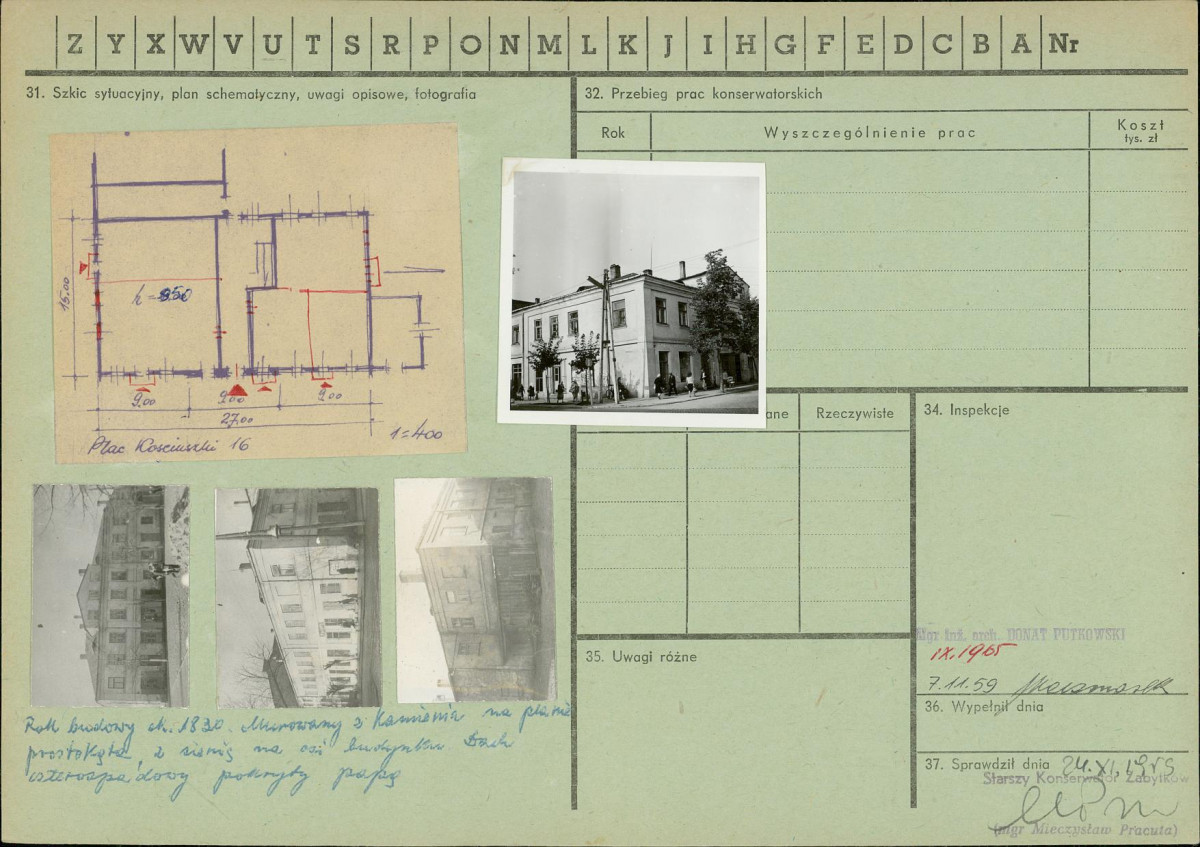 Z Y X W V U T S R P O N M L K J I H G F E D C B A Nr
31. Szkic sytuacyjny, plan schematyczny, uwagi opisowe, fotografia
15.00
h = 9.50
9.00 9.00 9.00
27.00
Plac Kościuszki 16
1=400
Rok budowy ok. 1830. Murowany z kamienia na planie
prostokąta, z sienią na osi budynku. Dach
czterospadowy pokryty papą
32. Przebieg prac konserwatorskich
Rok
Wyszczególnienie prac
Koszt
tys. zł
ane
Rzeczywiste
34. Inspekcje
35. Uwagi różne
Mgr inż. arch. DONAT PUTKOWSKI
IX.1965
7.11.59
36. Wypełnił dnia
37. Sprawdził dnia 24.XI.1959
Starszy Konserwator Zabytków
(mgr Mieczysław Pracuta)